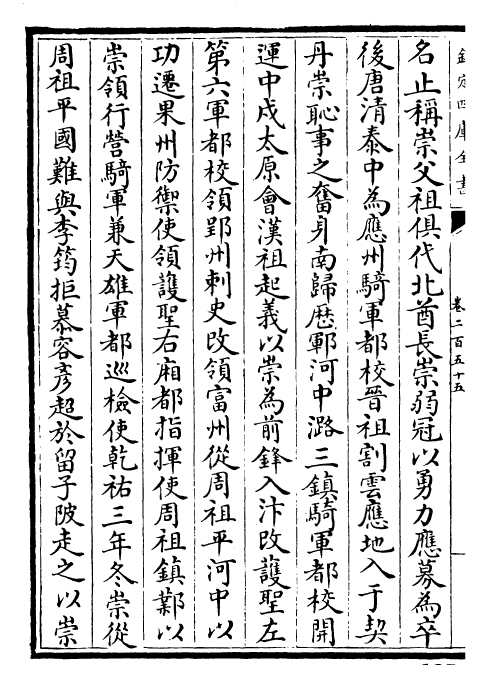 欽定四庫全書
卷二百五十五
名止稱崇父祖俱代北酋長崇弱冠以勇力應募為卒
後唐清泰中為應州騎軍都校晉祖割雲應地入于契
丹崇恥事之奮身南歸歴鄆河中潞三鎮騎軍都校開
運中戍太原會漢祖起義以崇為前鋒入汴改護聖左
第六軍都校領郢州刺史改領富州從周祖平河中以
功遷果州防禦使領護聖右廂都指揮使周祖鎮鄴以
崇領行營騎軍兼天雄軍都巡檢使乾祐三年冬崇從
周祖平國難與李筠拒慕容彦超於留子陂走之以崇